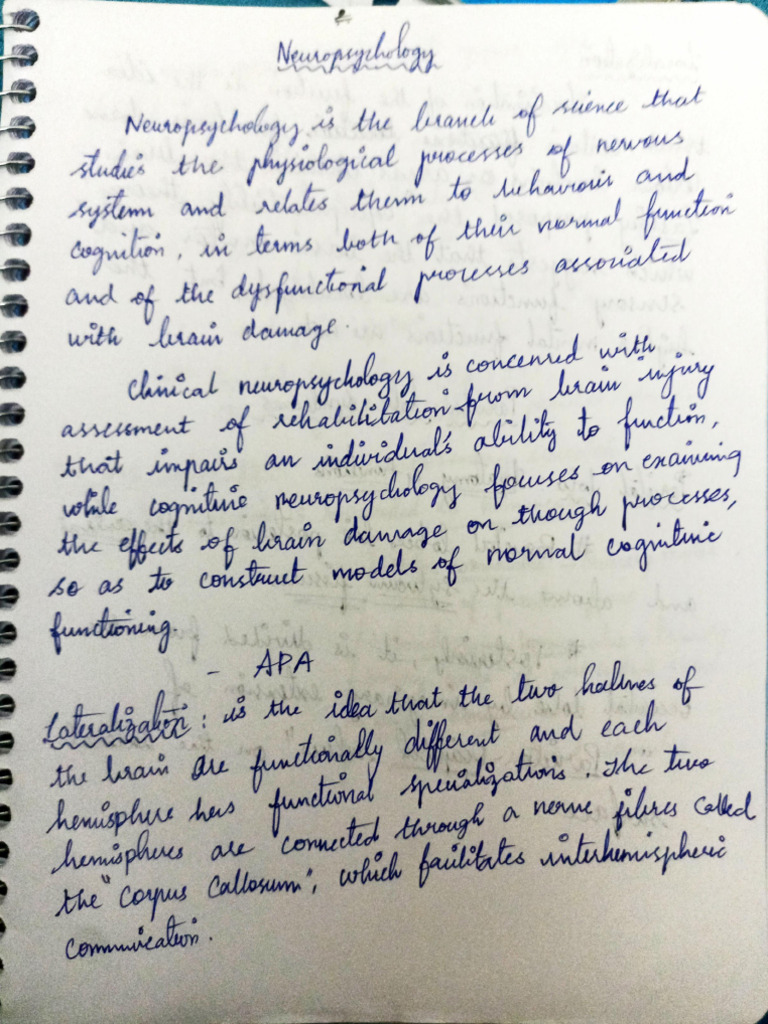 Neuropsychology
Neuropsychology is the branch of science that
studies the physiological processes of nervous
system and relates them to behaviour and
cognition, in terms both of their normal function
and of the dysfunctional processes associated
with brain damage.
Clinical neuropsychology is concenred with
assessment of rehabilitation from brain injury
that impairs an individual's ability to function,
while cognitive neuropsychology focuses on examing
the effects of brain damage on though processes,
so as to construct models of normal cognitive
functioning.
- APA
Lateralization : is the idea that the two halves of
the brain are functionally different and each
hemisphere has functional specializations. The two
hemispheres are connected through a nerve fibres called
the "Corpus Callosum", which facilitates interhemispheric
communication.